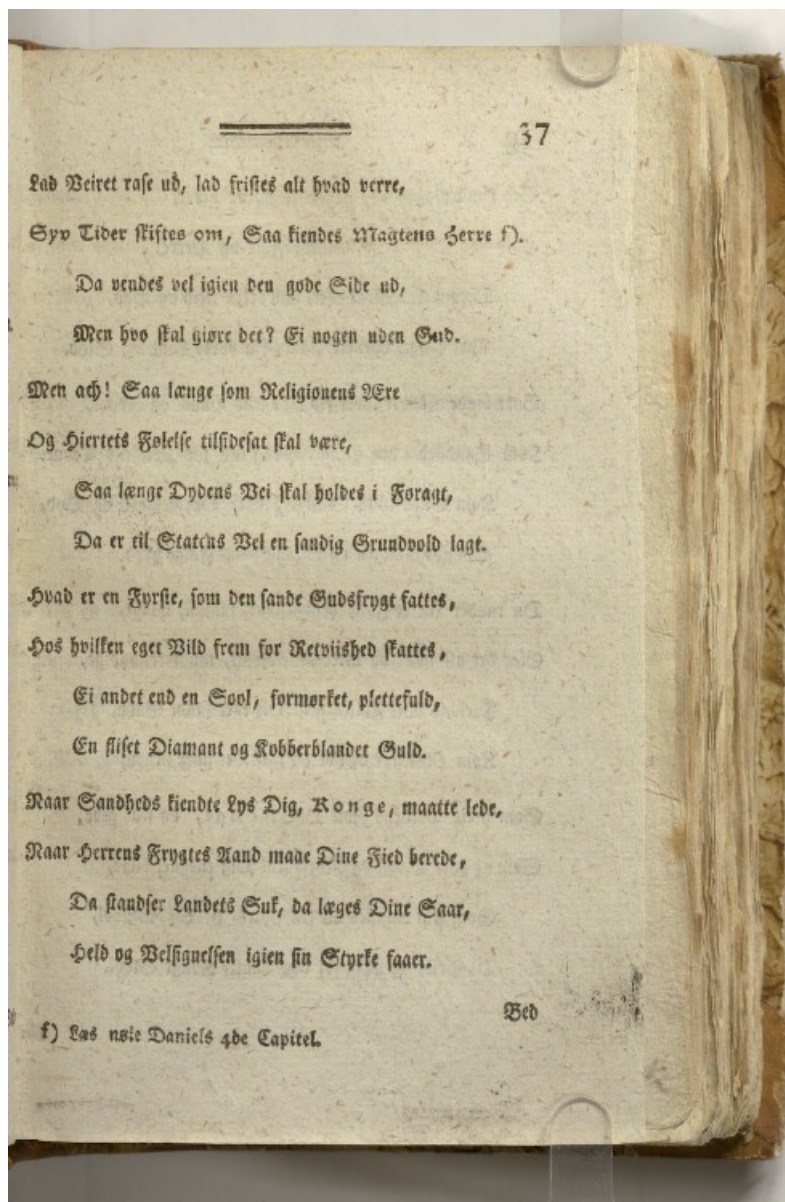 37
Lad Veiret rase ud, lad fristes alt hvad verre,
Syv Tider skiftes om, Saa kiendes Magtens Herre f).
Da vendes vel igien den gode Side ud,
Men hvo skal giøre det? Ei nogen uden Gud.
Men ach! Saa længe som Religionens Ære
Og Hiertets Følelse tilsidesat skal være,
Saa længe Dydens Vei skal holdes i Foragt,
Da er til Statens Vel en sandig Grundvold lagt.
Hvad er en Fyrste, som den sande Gudsfrygt fattes,
Hos hvilken eget Vild frem for Retviished skattes,
Ei andet end en Sool, formørket, plettefuld,
En sliset Diamant og Kobberblandet Guld.
Naar Sandheds kiendte Lys Dig, Konge, maatte lede,
Naar Herrens Frygtes Aand maae Dine Fied berede,
Da standser Landets Suk, da læges Dine Saar,
Held og Velsignelsen igien sin Styrke faaer.
Bed
f) Læs nøie Daniels 4de Capitel.